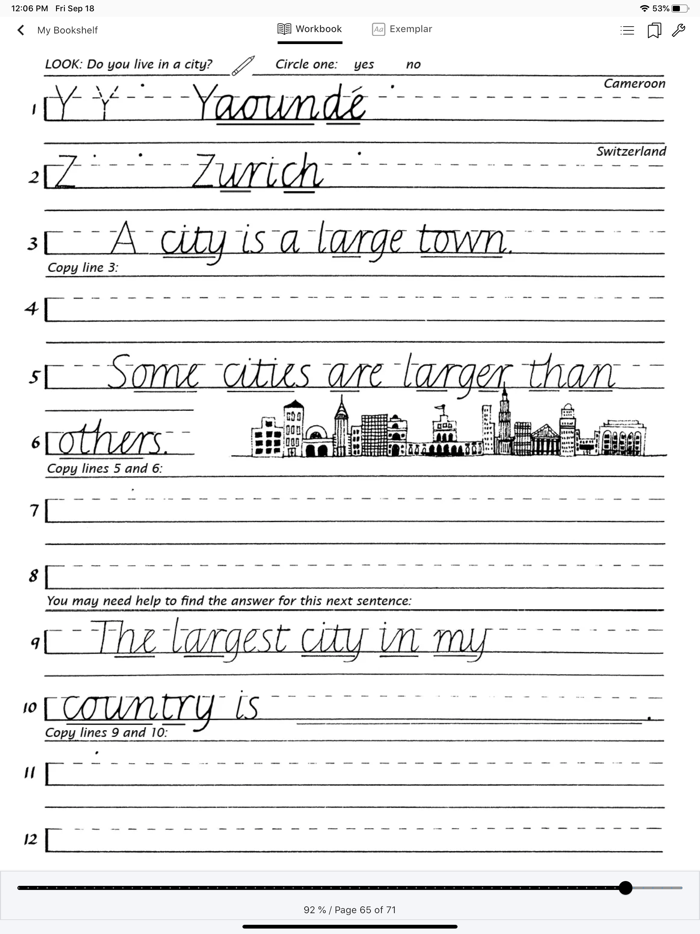 12:06 PM Fri Sep 18 53%
My Bookshelf Workbook Aa Exemplar
LOOK: Do you live in a city? Circle one: yes no
Cameroon
1 Y Y Yaoundé
Switzerland
2 Z Zurich
3 A city is a large town.
Copy line 3:
4
5 Some cities are larger than
6 others.
Copy lines 5 and 6:
7
8
You may need help to find the answer for this next sentence:
9 The largest city in my
10 country is .
Copy lines 9 and 10:
11
12
92 % / Page 65 of 71